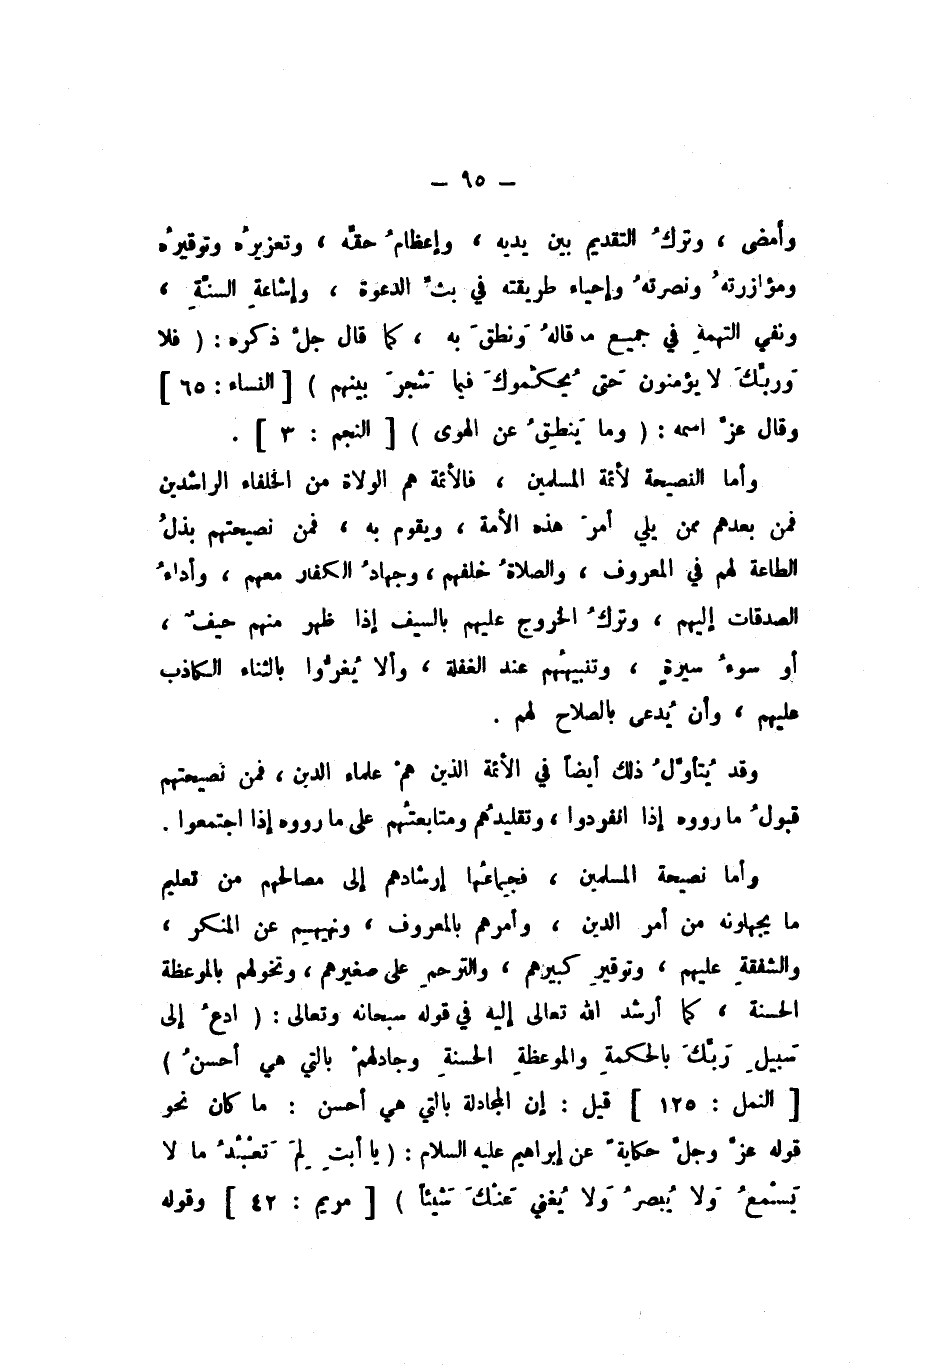 — ٩٥ —
وأمضى ، وتركُ التقديم بين يديه ، وإعظامُ حقّه ، وتعزيرُه وتوقيرُه
ومؤازرتهُ ونصرتهُ وإحياء طريقته في بثّ الدعوة ، وإشاعةِ السنّة ،
ونفي التهمةِ في جميع ما قالهُ وَنطقَ به ، كما قال جلّ ذكره : ( فلا
وَربِّكَ لا يؤمنون حَتى يُحكّموكَ فيما شَجرَ بينهم ) [ النساء : ٦٥ ]
وقال عزّ اسمه : ( وما يَنطِقُ عن الهوى ) [ النجم : ٣ ] .
وأما النصيحة لأئمة المسلمين ، فالأئمة هم الولاة من الخلفاء الراشدين
فمن بعدهم ممن يلي أمرَ هذه الأمة ، ويقوم به ، فمن نصيحتهم بذلُ
الطاعة لهم في المعروف ، والصلاةُ خلفهم ، وجهادُ الكفار معهم ، وأداءُ
الصدقات إليهم ، وتركُ الخروج عليهم بالسيف إذا ظهر منهم حيفٌ ،
أو سوءُ سيرةٍ ، وتنبيهُهم عند الغفلة ، وألا يُغرّوا بالثناء الكاذب
عليهم ، وأن يُدعى بالصلاح لهم .
وقد يُتأوّلُ ذلك أيضاً في الأئمة الذين همْ علماء الدين ، فمن نصيحتهم
قبولُ ما رووه إذا انفردوا ، وتقليدُهم ومتابعتُهم على ما رووه إذا اجتمعوا .
وأما نصيحة المسلمين ، فجماعُها إرشادهم إلى مصالحهم من تعليم
ما يجهلونه من أمر الدين ، وأمرهم بالمعروف ، ونهيهم عن المنكر ،
والشفقةِ عليهم ، وتوقيرِ كبيرهم ، والترحمِ على صغيرهم ، وتخولهم بالموعظة
الحسنة ، كما أرشد الله تعالى إليه في قوله سبحانه وتعالى : ( ادعُ إلى
سَبيلِ رَبِّكَ بالحكمةِ والموعظةِ الحسنةِ وجادلهمْ بالتي هي أحسنُ )
[ النمل : ١٢٥ ] قيل : إن المجادلة بالتي هي أحسن : ما كان نحو
قوله عزّ وجلّ حكايةً عن إبراهيم عليه السلام : ( يا أبتِ لِمَ تَعْبُدُ ما لا
يَسْمعُ وَلا يُبصرُ وَلا يُغني عَنْكَ شَيْئاً ) [ مريم : ٤٢ ] وقوله